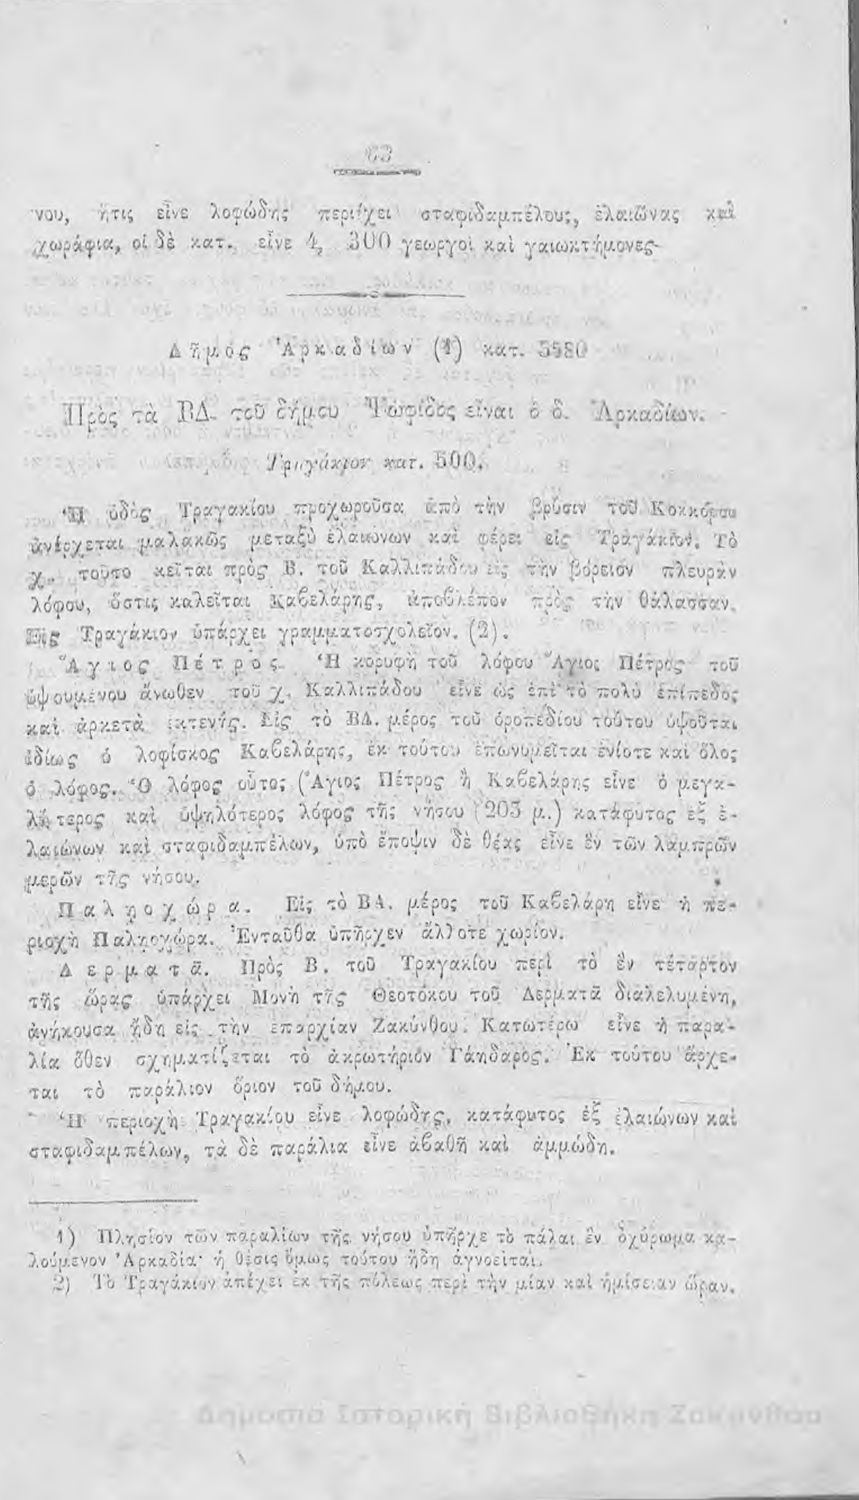 63
νου, ἥτις εἶνε λοφώδης περιέχει σταφιδαμπέλους, ἐλαιῶνας καὶ
χωράφια, οἱ δὲ κατ. εἶνε 4, 300 γεωργοὶ καὶ γαιωκτήμονες
Δῆμος Ἀρκαδίων (1) κατ. 5580
Πρὸς τὰ ΒΔ. τοῦ δήμου Ψωφῖδος εἶναι ὁ δ. Ἀρκαδίων.
Τραγάκιον κατ. 500.
Ἡ ὁδὸς Τραγακίου προχωροῦσα ἀπὸ τὴν βρύσιν τοῦ Κοκκόρου
ἀνέρχεται μαλακῶς μεταξὺ ἐλαιώνων καὶ φέρει εἰς Τραγάκιον. Τὸ
χ. τοῦτο κεῖται πρὸς Β. τοῦ Καλλιπάδου εἰς τὴν βόρειον πλευρὰν
λόφου, ὅστις καλεῖται Καβελάρης, ἀποβλέπον πρὸς τὴν θάλασσαν.
Εἰς Τραγάκιον ὑπάρχει γραμματοσχολεῖον. (2).
Ἅγιος Πέτρος. Ἡ κορυφὴ τοῦ λόφου Ἅγιος Πέτρος τοῦ
ὑψουμένου ἄνωθεν τοῦ χ. Καλλιπάδου εἶνε ὡς ἐπὶ τὸ πολὺ ἐπίπεδος
καὶ ἀρκετὰ ἐκτενής. Εἰς τὸ ΒΔ. μέρος τοῦ ὀροπεδίου τούτου ὑψοῦται
ἰδίως ὁ λοφίσκος Καβελάρης, ἐκ τούτου ἐπωνυμεῖται ἐνίοτε καὶ ὅλος
ὁ λόφος. Ὁ λόφος οὗτος (Ἅγιος Πέτρος ἢ Καβελάρης εἶνε ὁ μεγα-
λήτερος καὶ ὑψηλότερος λόφος τῆς νήσου (203 μ.) κατάφυτος ἐξ ἐ-
λαιώνων καὶ σταφιδαμπέλων, ὑπὸ ἔποψιν δὲ θέας εἶνε ἓν τῶν λαμπρῶν
μερῶν τῆς νήσου.
Παληοχώρα. Εἰς τὸ ΒΔ. μέρος τοῦ Καβελάρη εἶνε ἡ πε-
ριοχὴ Παληοχώρα. Ἐνταῦθα ὑπῆρχεν ἄλλοτε χωρίον.
Δερματᾶ. Πρὸς Β. τοῦ Τραγακίου περὶ τὸ ἓν τέταρτον
τῆς ὥρας ὑπάρχει Μονὴ τῆς Θεοτόκου τοῦ Δερματᾶ διαλελυμένη,
ἀνήκουσα ἤδη εἰς τὴν ἐπαρχίαν Ζακύνθου. Κατωτέρω εἶνε ἡ παρα-
λία ὅθεν σχηματίζεται τὸ ἀκρωτήριον Γάηδαρος. Ἐκ τούτου ἄρχε-
ται τὸ παράλιον ὅριον τοῦ δήμου.
Ἡ περιοχὴ Τραγακίου εἶνε λοφώδης, κατάφυτος ἐξ ἐλαιώνων καὶ
σταφιδαμπέλων, τὰ δὲ παράλια εἶνε ἀβαθῆ καὶ ἀμμώδη.
1) Πλησίον τῶν παραλίων τῆς νήσου ὑπῆρχε τὸ πάλαι ἓν ὀχύρωμα κα-
λούμενον Ἀρκαδία· ἡ θέσις ὅμως τούτου ἤδη ἀγνοεῖται.
2) Τὸ Τραγάκιον ἀπέχει ἐκ τῆς πόλεως περὶ τὴν μίαν καὶ ἡμίσειαν ὥραν.
Δημόσια Ιστορική Βιβλιοθήκη Ζακύνθου